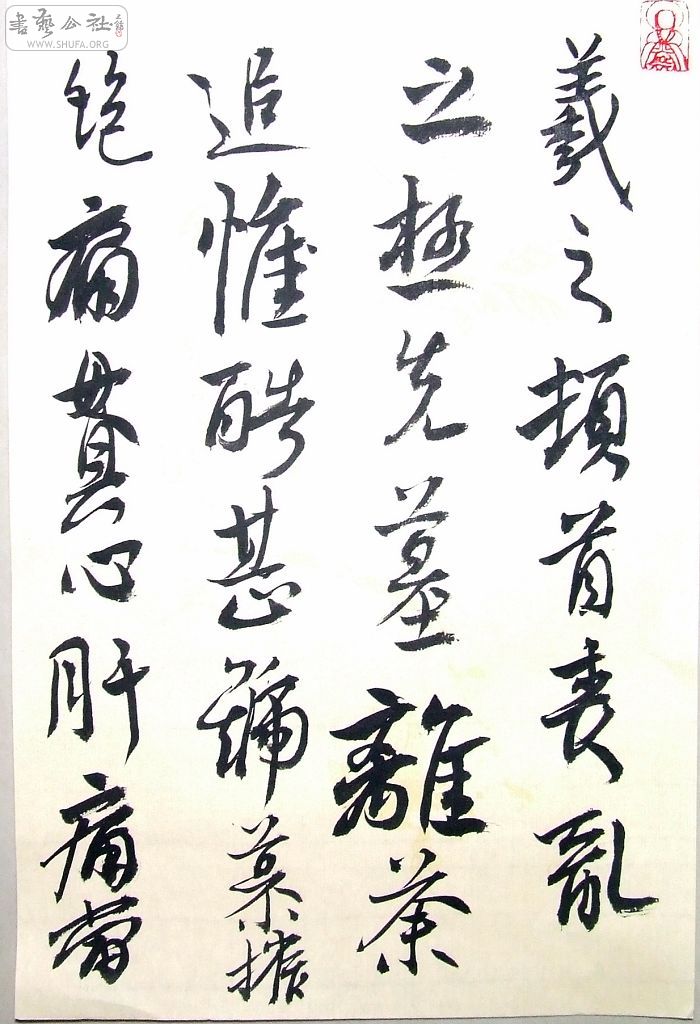 書藝公社
WWW.SHUFA.ORG
羲之頓首喪亂
之極先墓離荼
追惟酷甚號慕摧
絕痛貫心肝痛當